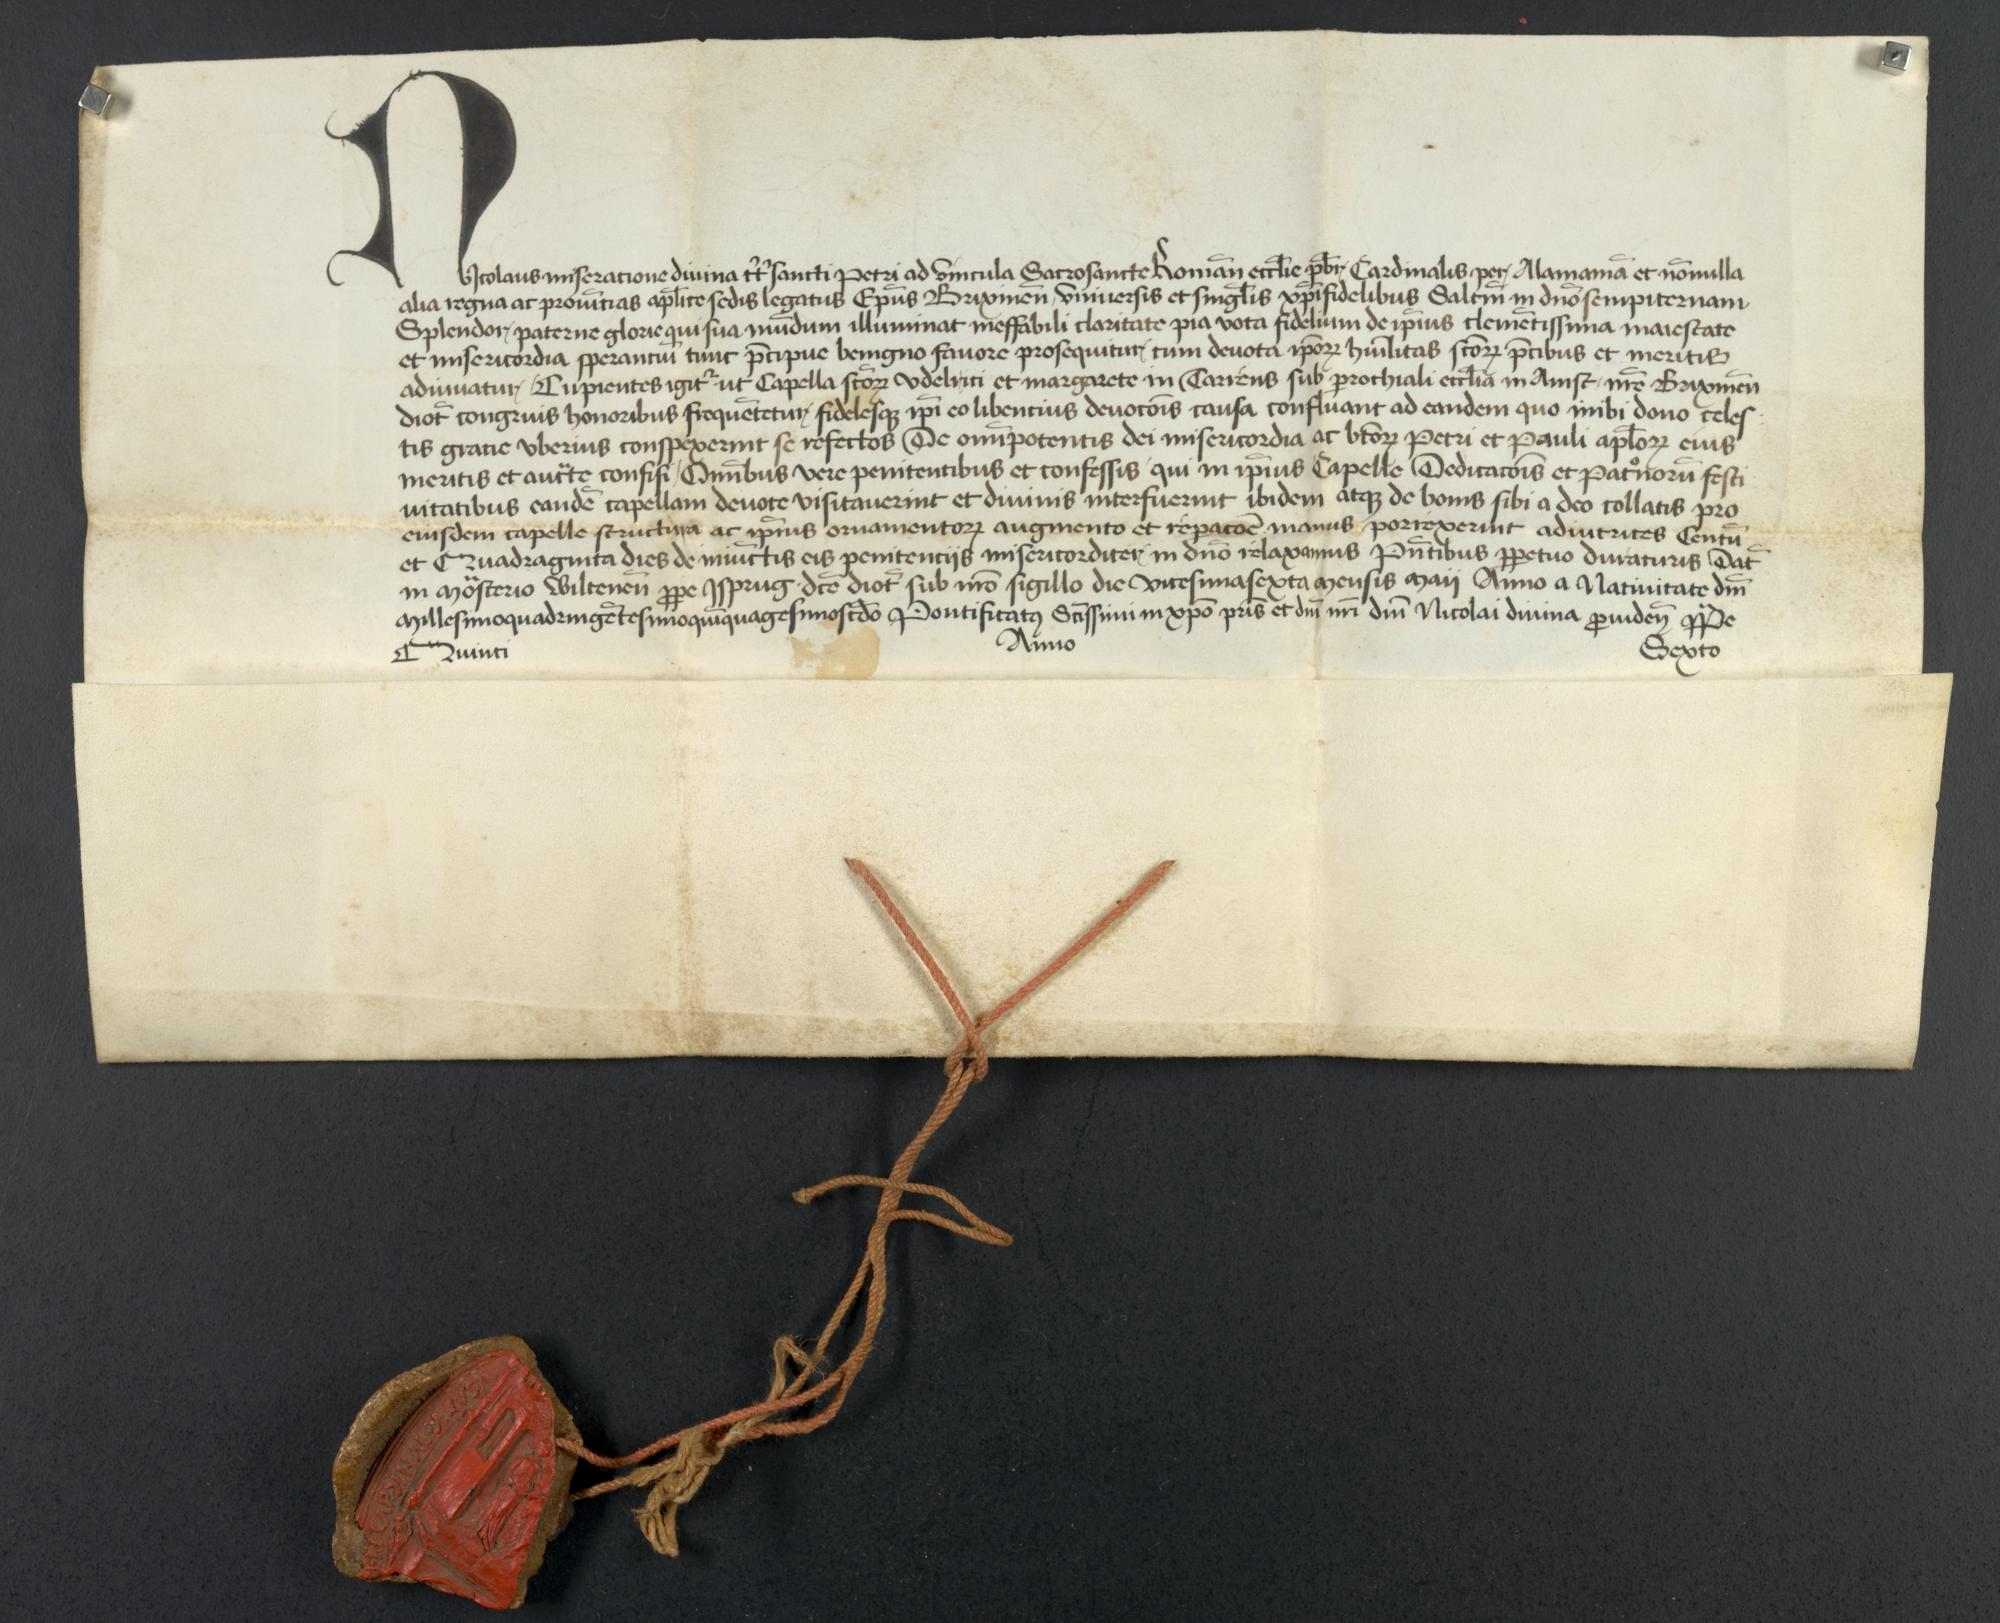 Nicolaus miseratione divina tt̄ sancti Petri ad vincula Sacrosancte Romañ eccl̄ie p̄br̄ Cardinalis per Alamaniā et nōnnulla
alia regna ac prouīcias ap̄lice sedis legatus Ep̄us Brixineñ vniuersis et singl̄is xp̄ifidelibus Salt̄m in dn̄o sempiternam
Splendor paterne glorie qui sua mūdum illuminat ineffabili claritate pia vota fidelium de ip̄ius clemētissima maiestate
et misericordia sperantiū tunc p̄cipue benigno fauore prosequitur cum deuota ip̄oꝝ hūilitas sc̄oꝝ p̄cibus et meritis
adiuuatur Cupientes igit᷑ ut Capella sc̄oꝝ vdelrici et margarete in sub parrochiali eccl̄ia in Amst nr̄e Brixineñ
dioc̄ congruis honoribus frequētetur fidelesqꝫ ip̄i eo libencius deuoc̄ois causa confluant ad eandem quo inibi dono celes
tis gracie vberius conspexerint se refectos De omīpotentis dei misericordia ac bt̄oꝝ Petri et Pauli ap̄loꝝ eius
meritis et auct̄te confisi Omībus vere penitentibus et confessis qui in ip̄ius Capelle Dedicac̄ois et Patᵒnorū festi
uitatibus eandē capellam deuote visitauerint et diuinis interfuerint ibidem atqꝫ de bonis sibi a deo collatis pro
eiusdem capelle structura ac ip̄ius ornamentoꝝ augmento et repac̄oē manus porrexerint adiutrices Centū
et Quadraginta dies de iniūctis eis penitencijs misericorditer in dn̄o relaxamus Pn̄tibus ꝑpetuo duraturis Dat̄
in Mo᷑sterio Wilteneñ ꝓpe Jsprug dc̄e dioc̄ sub nr̄o sigillo die vicesimasexta Mensis Maii Anno a Natiuitate dn̄i
Millesimoquadringētesimoquīquagesimosc̄do Pontificatꝰ Sc̄issimi in xp̄o pr̄is et dn̄i nr̄i dn̄i Nicolai diuina ꝓuideñ ꝑpe
Quinti Anno Sexto